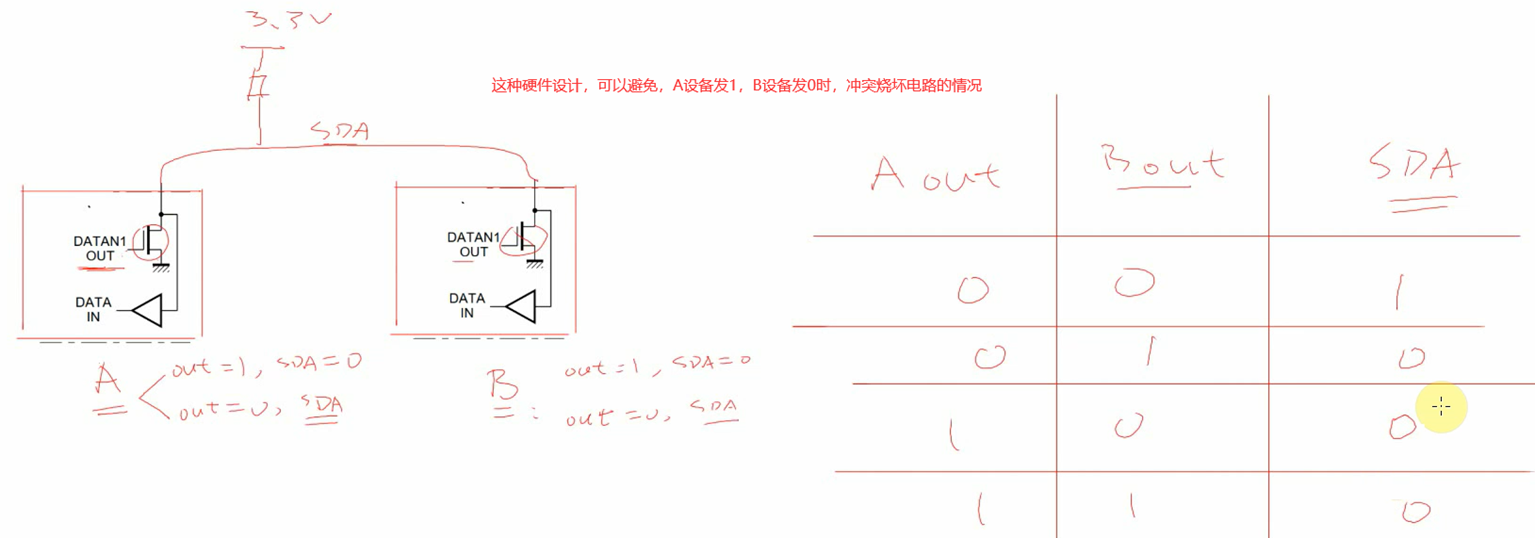 3.3V
这种硬件设计，可以避免，A设备发1，B设备发0时，冲突烧坏电路的情况
SDA
DATAN1
OUT
DATA
IN
DATAN1
OUT
DATA
IN
A
out=1, SDA=0
out=0, SDA
B :
out=1, SDA=0
out=0, SDA
A out B out SDA
0 0 1
0 1 0
1 0 0
1 1 0